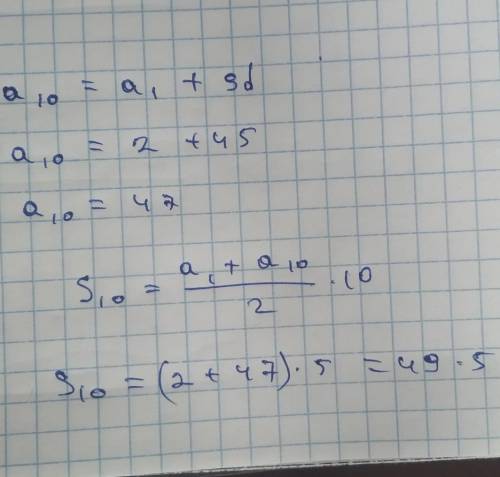 a₁₀ = a₁ + 9d
a₁₀ = 2 + 45
a₁₀ = 47
S₁₀ = (a₁ + a₁₀)/2 · 10
S₁₀ = (2 + 47) · 5 = 49 · 5